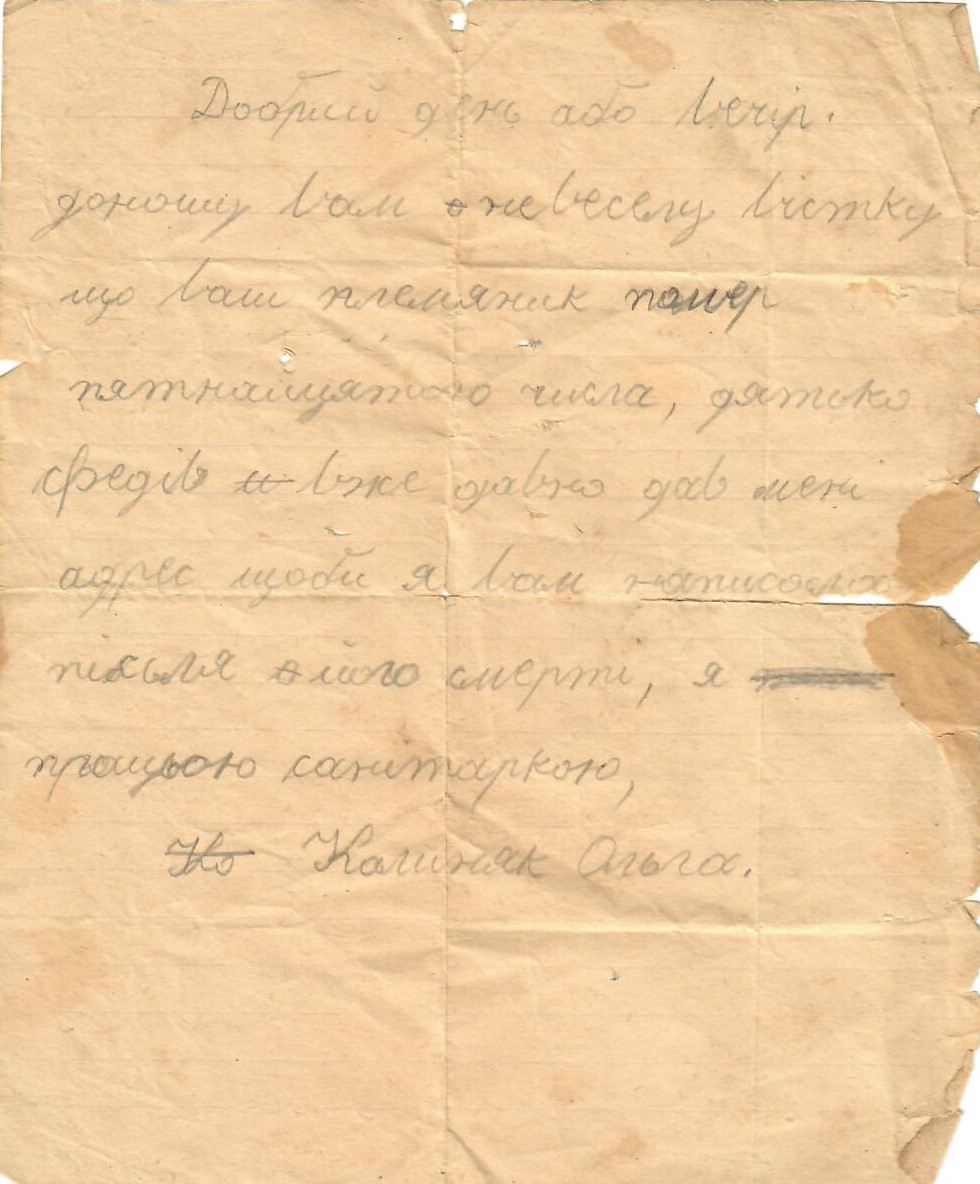 Добрий день або вечір.
доношу вам невеселу вістку
що ваш племяник помер
пятнайцятого числа, дятько
федів вже давно дав мені
адрес щоби я вам написала
пісьля його смерти, я
працьою санітаркою,
Ко Калиняк Ольга.